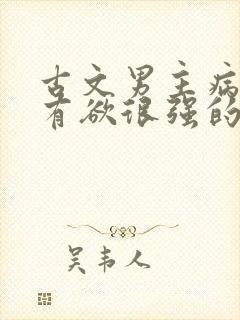 古文男主病
有欲很强的
吴韦人